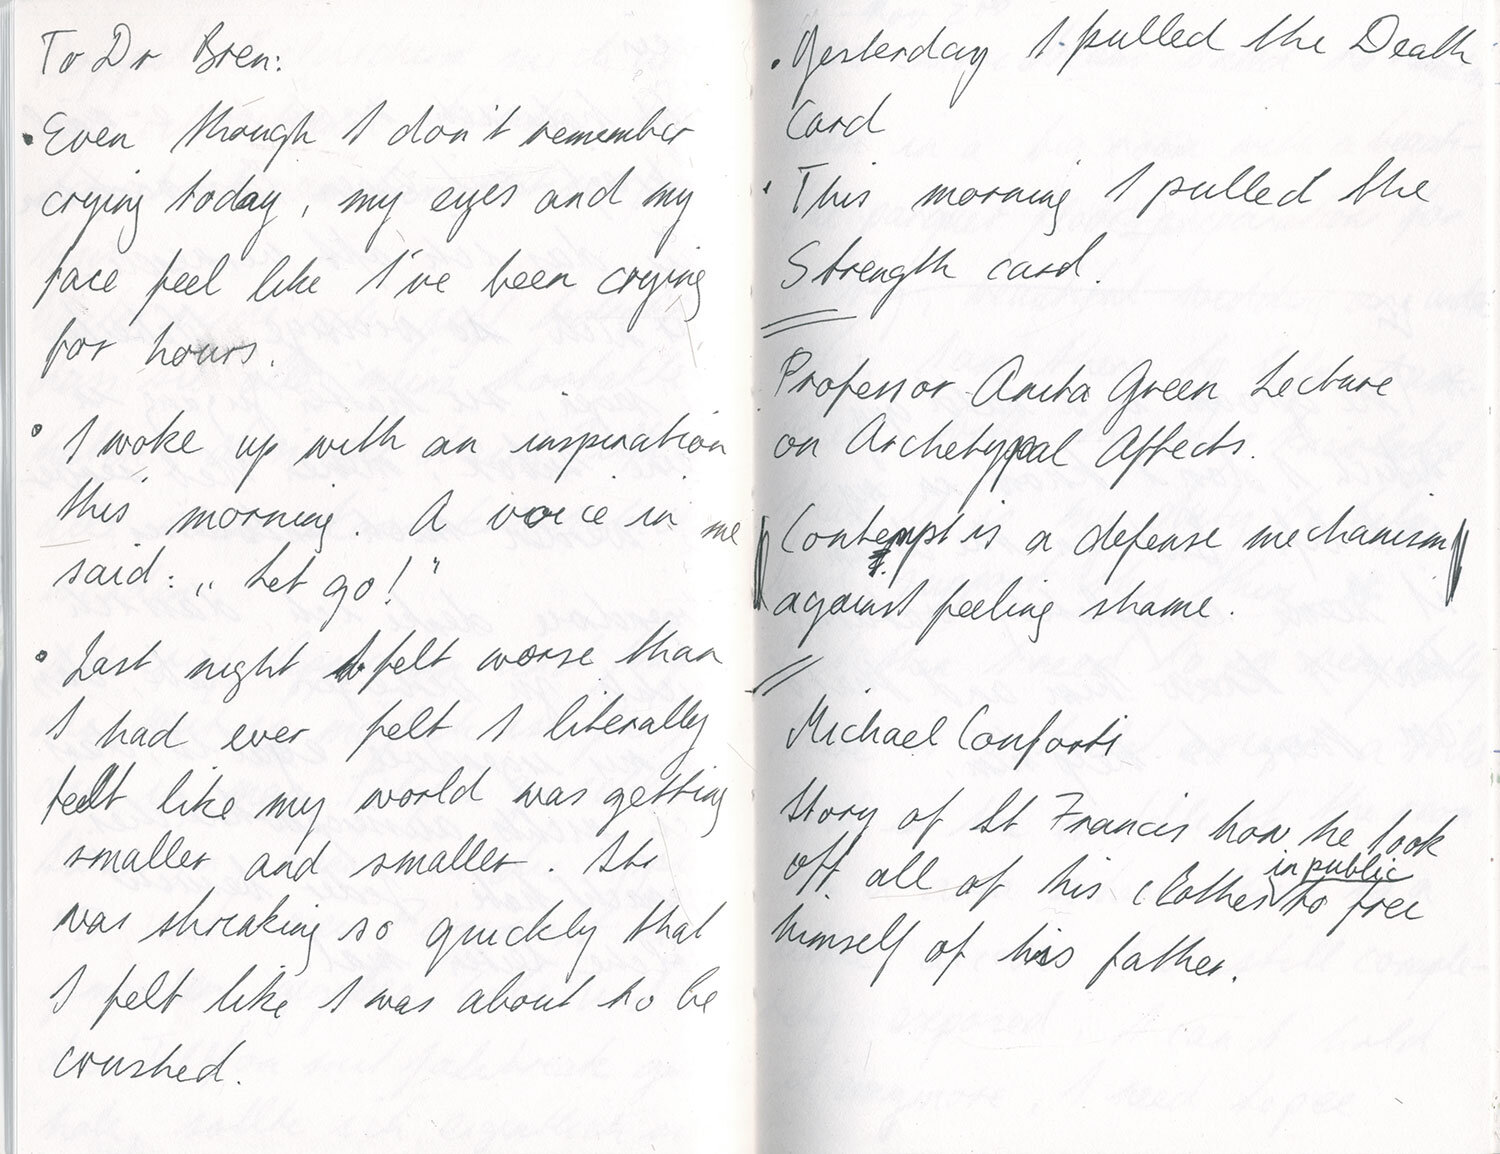 To Dr Bren:
• Even though I don't remember
crying today, my eyes and my
face feel like I've been crying
for hours.
• I woke up with an inspiration
this morning. A voice in me
said: „Let go!"
• Last night I felt worse than
I had ever felt I literally
felt like my world was getting
smaller and smaller. It
was shreaking so quickly that
I felt like I was about to be
crushed.
• Yesterday I pulled the Death
Card
• This morning I pulled the
Strength card.
Professor Anita Green Lecture
on Archetypal Affects.
Contempt is a defense mechanism
against feeling shame.
Michael Conforti
Story of St Francis how he took
off all of his clothes in public to free
himself of his father.